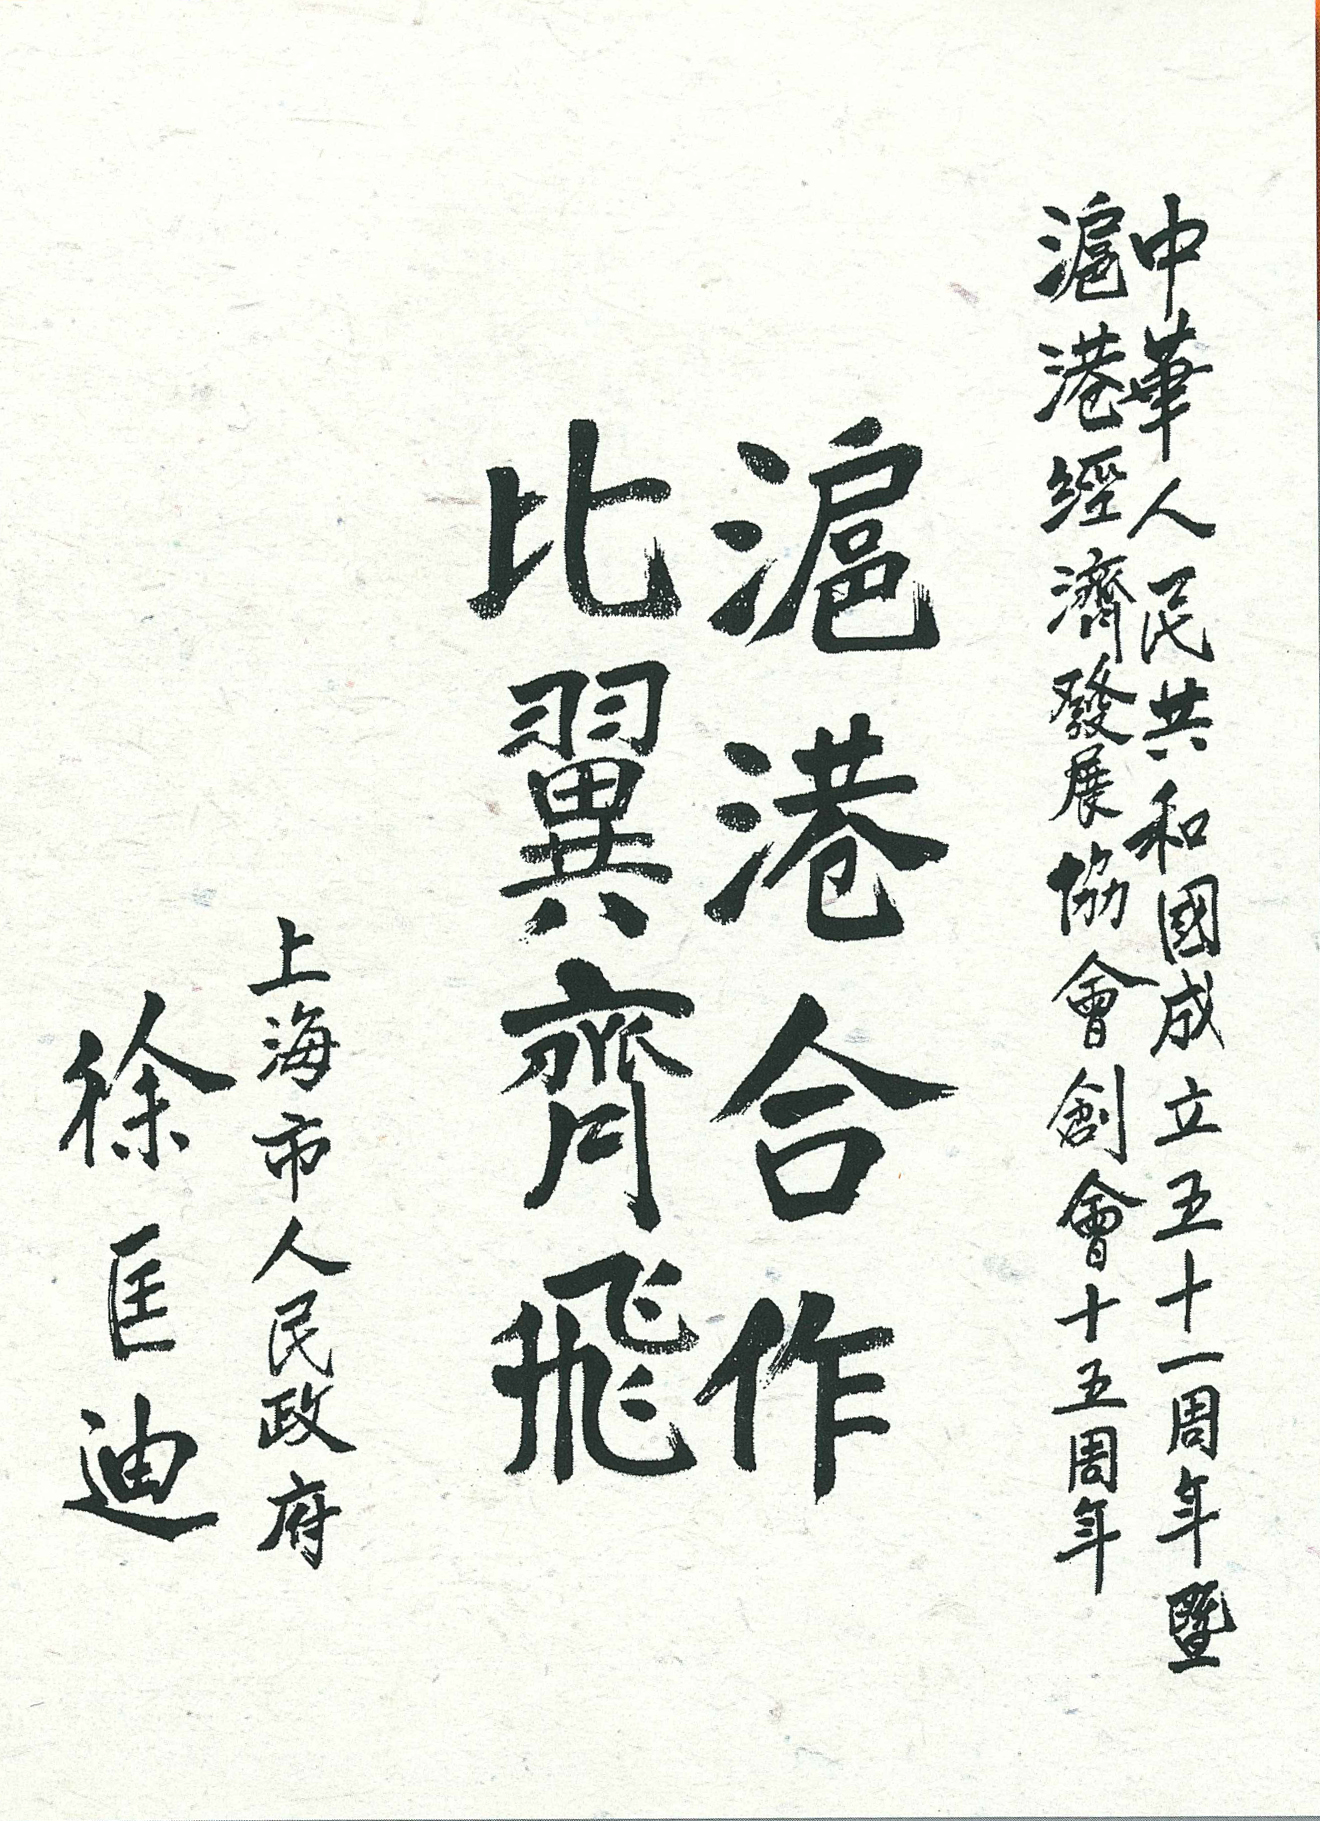 中華人民共和國成立五十一周年暨
滬港經濟發展協會創會十五周年
滬港合作
比翼齊飛
上海市人民政府
徐匡迪